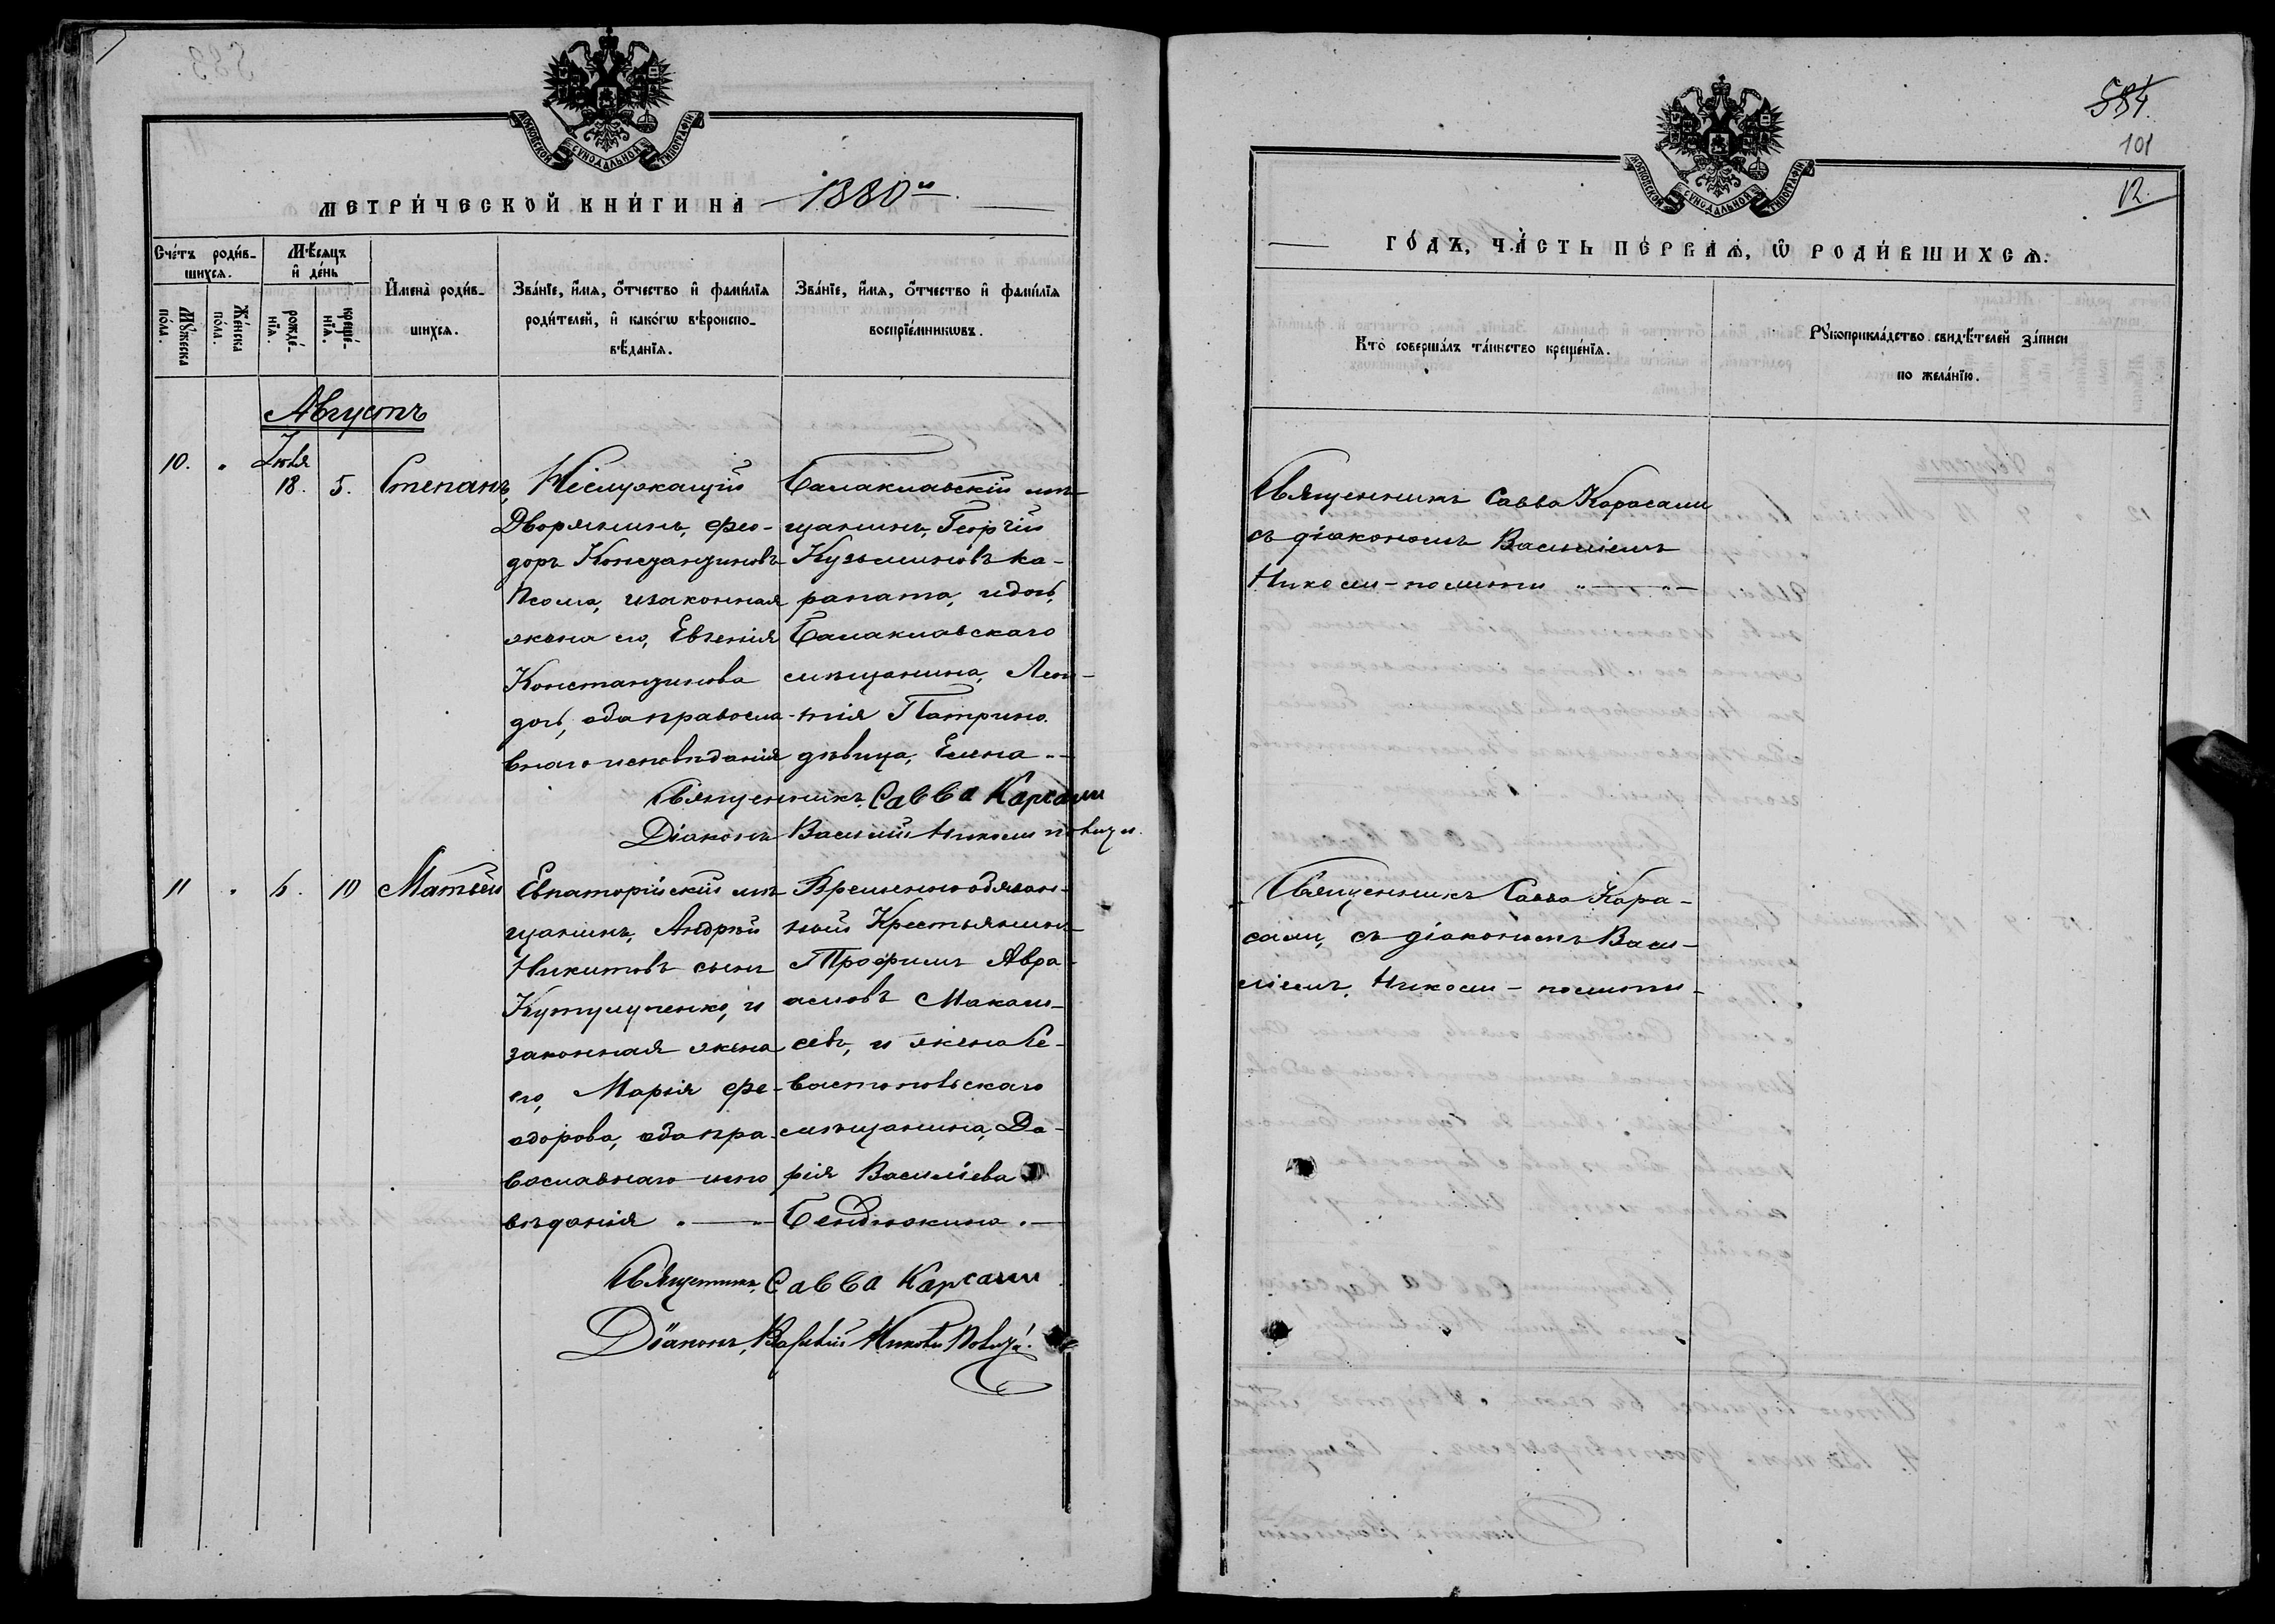 МОСКОВСКОЙ СѴНОДАЛЬНОЙ ТИПОГРАФІИ
МЕТРИ́ЧЕСКОЙ КНИ́ГИ НА 1880й
Сче́тъ роди́в-
шихсѧ.
Мѣ́сѧцъ
и҆ де́нь
Мꙋ́жеска
по́ла.
Же́нска
по́ла.
рожде́-
нїѧ.
креще́-
нїѧ.
И҆мена̀ роди́в-
шихсѧ.
Зва́нїе, и҆́мѧ, ѻ҆́тчество и҆ фами́лїѧ
роди́телей, и҆ како́гѡ вѣроиспо-
вѣ́данїѧ.
Зва́нїе, и҆́мѧ, ѻ҆́тчество и҆ фами́лїѧ
воспрїе́мникѡвъ.
Августъ
10. " Іюля 18. 5. Степанъ,
Неслужащій
Дворянинъ, Ѳео-
доръ Констандиновъ
Псома, и законная
жена его, Евгенія
Константинова
дочь, оба правосла-
внаго исповѣданія
Балаклавскій мѣ-
щанинъ, Георгій
Кузьминовъ Ка-
рапата, и дочь,
Балаклавскаго
мѣщанина, Леон-
тія Патрино.
дѣвица, Елена "-
Священникъ Савва Карсами
Діаконъ Василій
11 " 6. 10 Матвѣй
Евпаторійскій мѣ-
щанинъ, Андрей
Никитовъ сынъ
и
законная жена
его, Марія Ѳе-
одорова, оба пра-
вославнаго испо
вѣданія "—"
Временнообязан-
ный Крестьянинъ
Трофимъ Авра-
амовъ
севъ, и жена Се-
вастопольскаго
мѣщанина, Да-
рія Василіева
Бендюкина "—
Священникъ, Савва Карсами
Діаконъ, Василій
584
101
12.
МОСКОВСКОЙ СѴНОДАЛЬНОЙ ТИПОГРАФІИ
ГО́ДЪ, ЧА́СТЬ ПЕ́РВАѦ, Ѡ҆ РОДИ́ВШИХСѦ.
Кто̀ соверша́лъ та́инство креще́нїѧ.
Рꙋкоприкла́дство свидѣ́телей за́писи
по жела́нїю.
Священникъ Савва Карасами
съ діакономъ Василіемъ
Николи-полити "—"
Священникъ Савва Кара-
сами, съ діакономъ Васи-
ліемъ, Николи-полити-